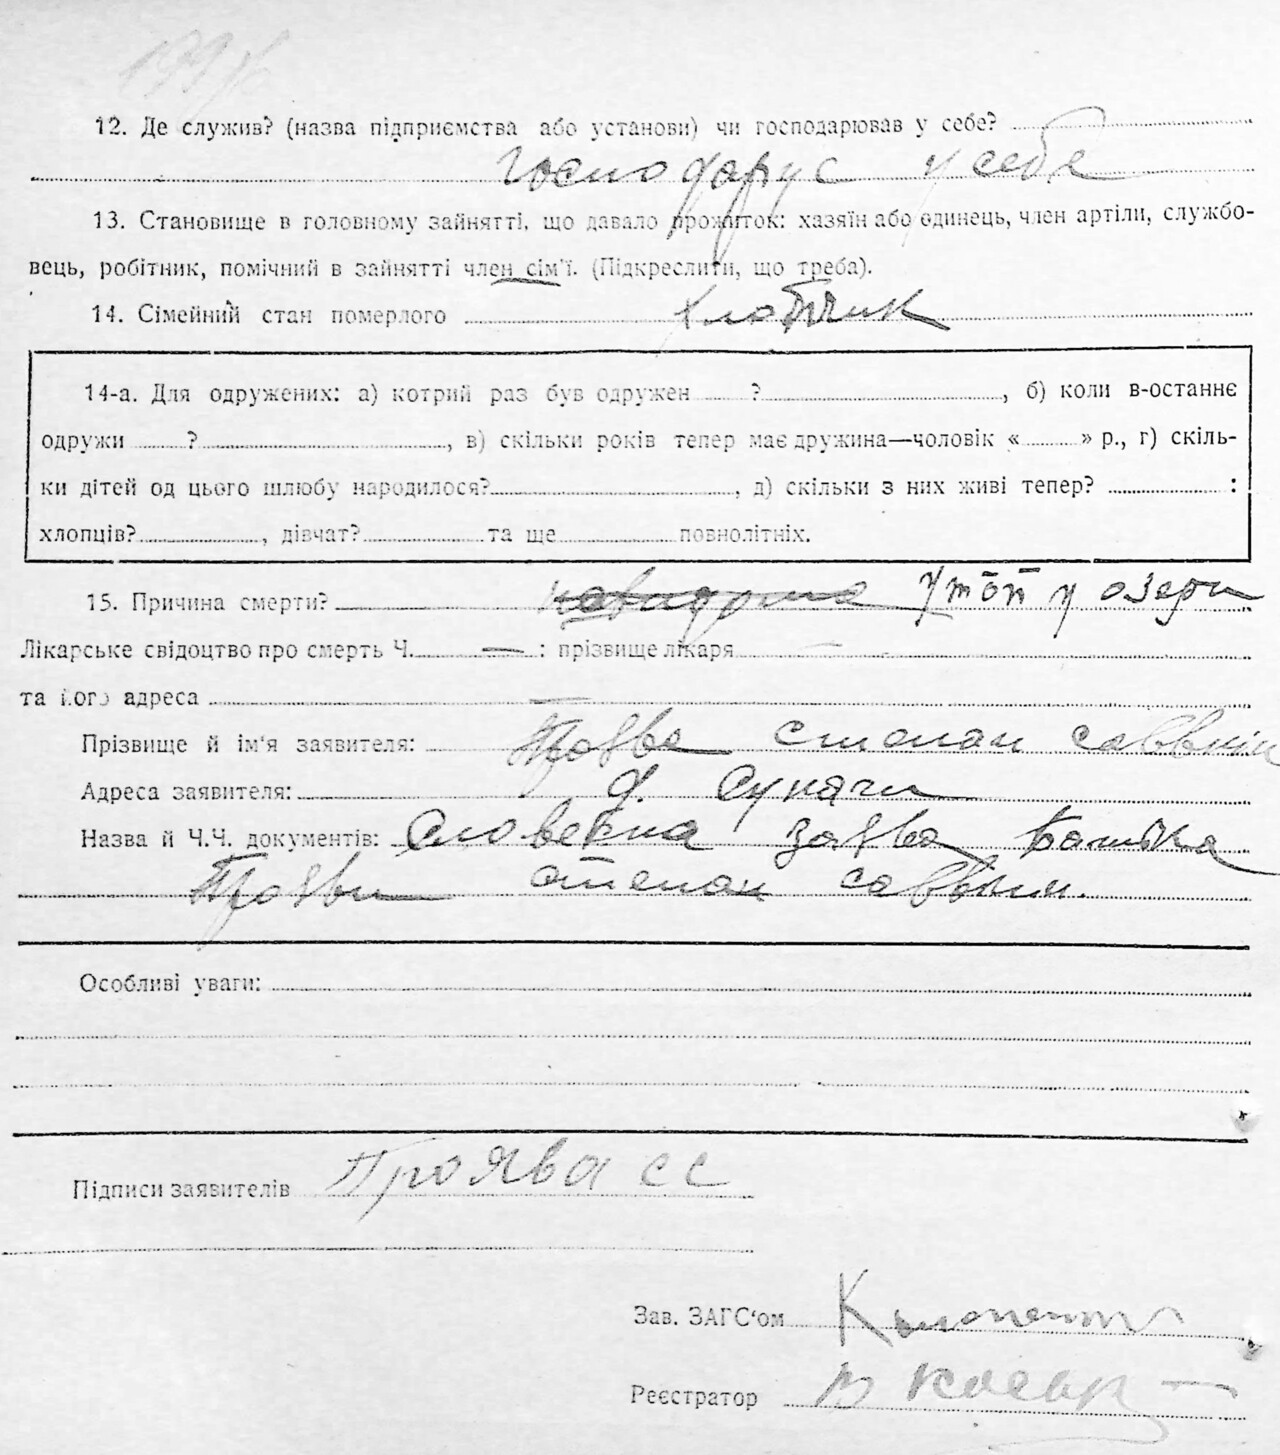 12. Де служив? (назва підприємства або установи) чи господарював у себе?
Господарує у себе
13. Становище в головному зайнятті, що давало прожиток: хазяїн або одинець, член артіли, службо-
вець, робітник, помічний в зайнятті член сім'ї. (Підкреслити, що треба).
14. Сімейний стан померлого хлопчик
14-а. Для одружених: а) котрий раз був одружен ? , б) коли в-останнє
одружи ? , в) скільки років тепер має дружина—чоловік « » р., г) скіль-
ки дітей од цього шлюбу народилося? , д) скільки з них живі тепер? :
хлопців? , дівчат? та ще повнолітніх.
15. Причина смерти? невидома утоп у озери
Лікарське свідоцтво про смерть Ч. — : прізвище лікаря —
та його адреса —
Прізвище й ім'я заявителя: Проява Степан
Адреса заявителя: Сунячи
Назва й Ч.Ч. документів: Словесна заява батька
Прояви Степан
Особливі уваги:
Підписи заявителів Проява СС
Зав. ЗАГС'ом
Реєстратор